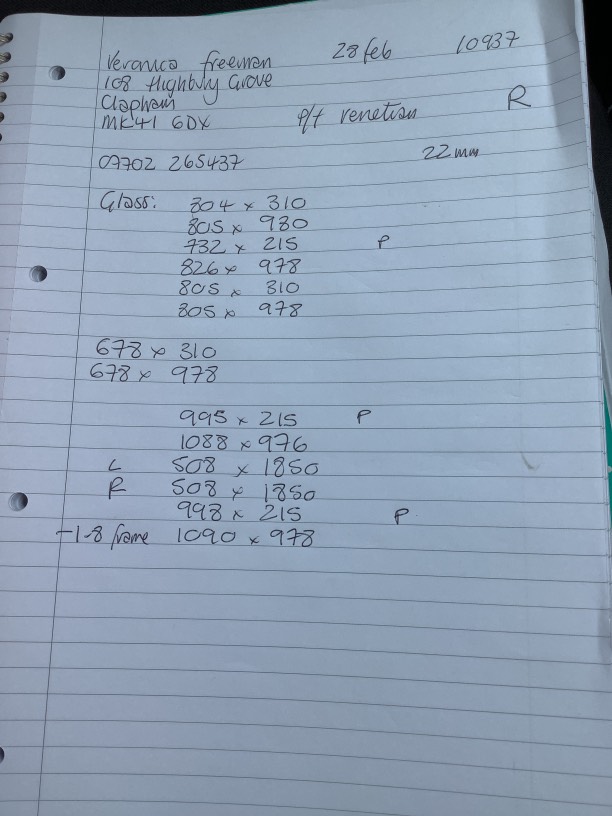 Veronica Freeman 28 Feb 10937
108 Highbury Grove
Clapham
MK41 6DX p/t venetian R
07702 265437 22mm
Glass: 804 x 310
805 x 980
732 x 215 P
826 x 978
805 x 310
805 x 978
678 x 310
678 x 978
995 x 215 P
1088 x 976
L 508 x 1850
R 508 x 1850
998 x 215 P
-1-8 frame 1090 x 978